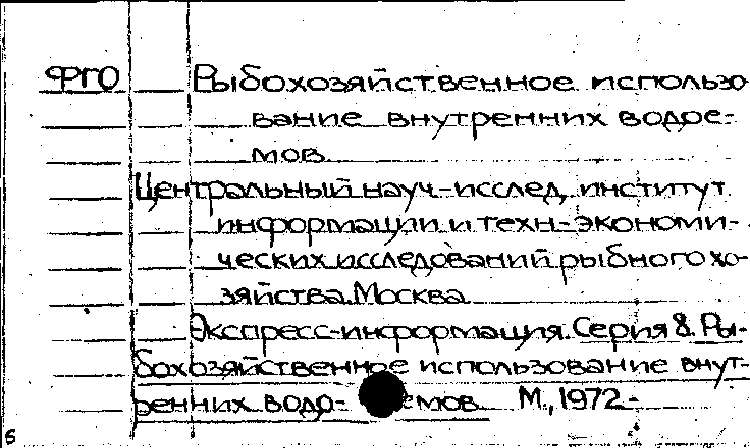 ФГО Рыбохозяйственное использо
вание внутренних водое-
мов
Центральный науч.-исслед. институт
информации и техн.-экономи-
ческих исследований рыбного хо-
зяйства. Москва
Экспресс-информация. Серия 8. Ры-
бохозяйственное использование внут-
ренних водо- емов М., 1972-
6